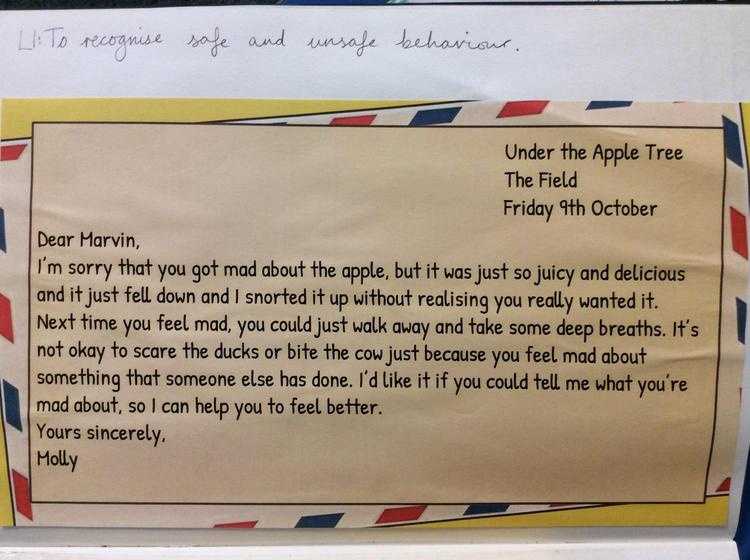 LI: To recognise safe and unsafe behaviour.
Under the Apple Tree
The Field
Friday 9th October
Dear Marvin,
I'm sorry that you got mad about the apple, but it was just so juicy and delicious
and it just fell down and I snorted it up without realising you really wanted it.
Next time you feel mad, you could just walk away and take some deep breaths. It's
not okay to scare the ducks or bite the cow just because you feel mad about
something that someone else has done. I'd like it if you could tell me what you're
mad about, so I can help you to feel better.
Yours sincerely,
Molly